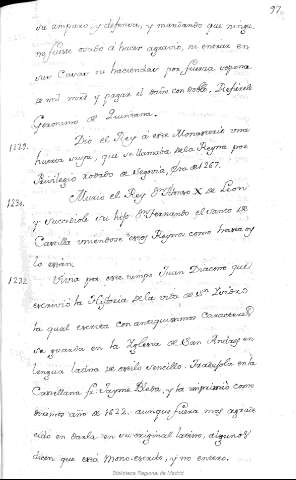 97.
su amparo, y defensa, y mandando que ningu-
no fuese osado á hacer agravio, ni entrar en
sus Casas ni haciendas por fuerza, so pena
de mil mrs. y pagar el daño con doblo. Refierelo
Geronimo de Quintana.
1229. Dio el Rey á este Monasterio una
huerta suya, que es llamada de la Reyna por
Privilegio rodado de Segovia, Era de 1267.
1230. Murio el Rey Dn. Alonso X de Leon
y sucediole su hijo Dn. Fernando el Santo de
Castilla uniendose estos Reynos como hasta oy
lo están.
1232 Vivia por este tiempo Juan Diacono que
escrivió la Historia de la vida de Sn. Isidro
la qual escrita con antiquisimos caracteres
se guarda en la Iglesia de San Andres en
lengua latina de estilo sencillo. Tradujola en la
Castellana fr. Jayme Bleda, y la imprimió como
diremos año de 1622. aunque fuera mas agrade
cido en darla en su original latino, algunos
dicen que está mono-escrito, y no entero.
Biblioteca Regional de Madrid